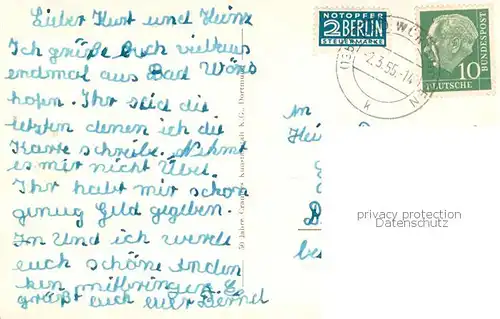 Lieber Kurt und Heinz
Ich grüße Euch vielmus
endmal aus Bad Wöris
hofen. Ihr seid die
letzten denen ich die
Karte schreibe. Nehmt
es mir nicht Übel.
Ihr habt mir schon
genug Geld gegeben.
Im Und ich werde
euch schöne Anden
ken mitbringen. Es
grüßt euch euer Bernd
50 Jahre Kunstanstalt K.G., Dortmund
NOTOPFER
2 BERLIN
STEUERMARKE
-2.3.55.-14
k
DEUTSCHE
BUNDESPOST
10
An
Hei
D
be
privacy protection
Datenschutz